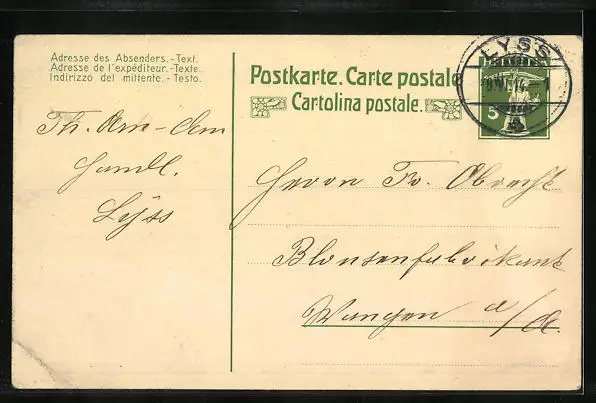 Adresse des Absenders.-Text.
Adresse de l'expéditeur.-Texte.
Indirizzo del mittente.-Testo.
Postkarte. Carte postale
Cartolina postale.
LYSS
5
Th. Am-dem
Handl.
Lyss
Herrn Fr. Obrecht
Blousenfabrikant
Wangen a/A.